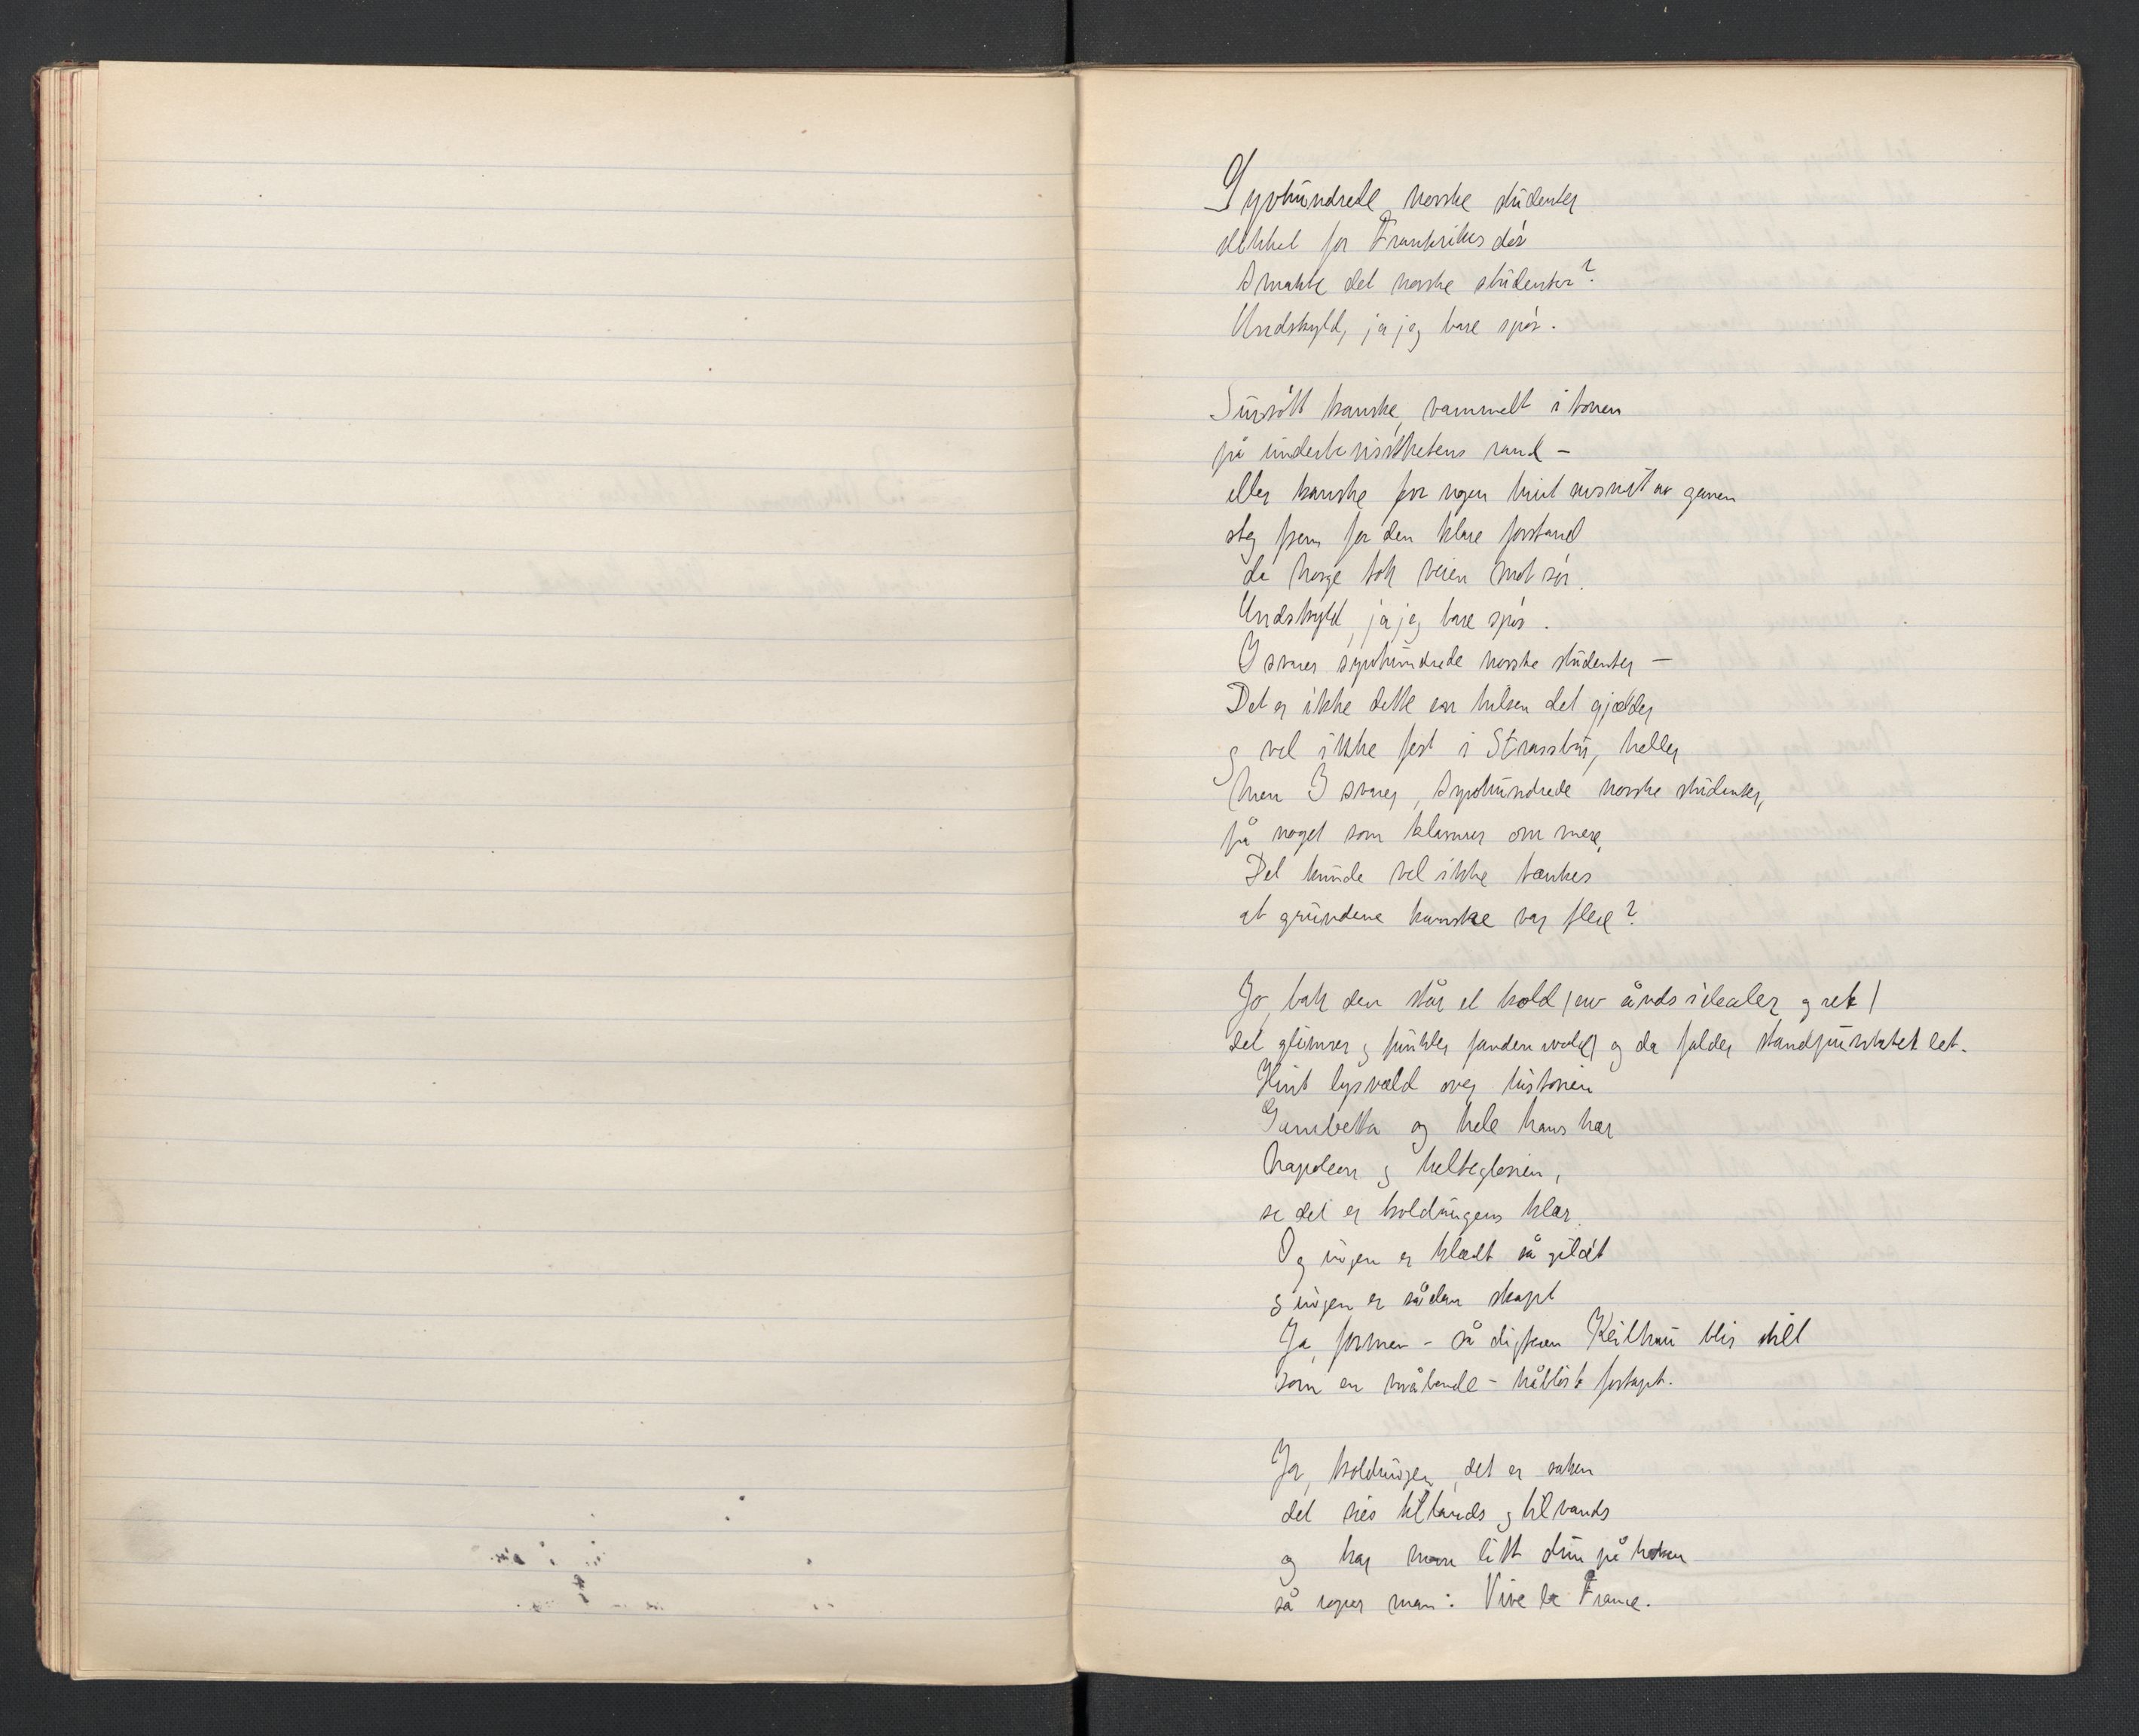 Syvhundrede norske studenter
slikket for Frankrikes dør
Smakte det norske studenter?
Undskyld, ja jeg bare spør.
Sursøtt kanske, vammelt i tonen
på underbevissthetens rand –
eller kanske for ingen hint av
steg frem for den klare forstand
da Norge tok veien mot sør.
Undskyld, ja jeg bare spør.
I svarer syvhundrede norske studenter –
Det er ikke dette en hilsen det gjælder
og vel ikke fest i Strassburg heller
Men I svarer, syvhundrede norske studenter,
på noget som klinger om mere,
Det kunde vel ikke tænkes
at grundene kanske var flere?
Jo, bak den står et hold (av åndsidealer og ret)
det glimrer og funkler fandenivoldsk og da falder standpunktet let.
Hint lysvæld over historien
Gambetta og hele hans hær
Napoleon og helteglorien,
se det er holdningens klær.
Og ingen er klædt så gildt
og ingen er sådan skapt
Ja, formen – så digteren Keilhau blir stilt
som en måbende – håbløst fortapt.
Ja, holdningen, det er saken
det sies tillands og tilvands
og har man litt dun på haken
så roper man: Vive la France.